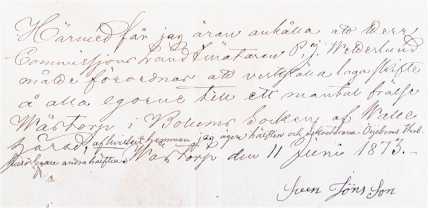 Härmed får jag äran anhålla att Herr
Commissions Landtmätaren P. J. Wederlund
måtte förordnas att verkställa laga skifte
å alla egorne till ett mantal frälse
Wästorp i Bohems Sockne af Walle
Härad, af hvilket hemman jag äger hälften och
andra hälften. Wästorp den 11 Juni 1873.
Sven Jönsson